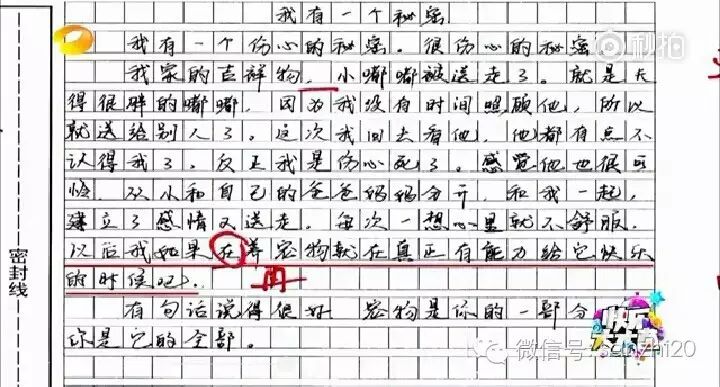 我有一个秘密
我有一个伤心的秘密。很伤心的秘密
我家的吉祥物，小嘟嘟被送走了。就是长
得很胖的嘟嘟，因为我没有时间照顾他，所以
就送给别人了。这次我回去看他，他都有点不
认得我了。反正我是伤心死了。感觉他也很可
怜，从小和自己的爸爸妈妈分开，和我一起，
建立了感情又送走。每次一想心里就不舒服。
以后我如果在养宠物就在真正有能力给它快乐
的时候吧。
再
有句话说得很好 宠物是你的一部分
你是它的全部。
密封线
秒拍
快乐
微信号: sanzhi20